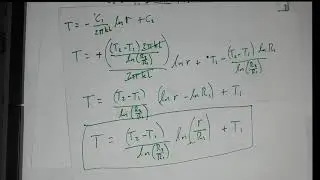 T = - C₁/2πkL ln r + C₂
T = + ((T₂-T₁) 2πkL / ln(R₂/R₁)) / 2πkL ln r + T₁ - (T₂-T₁) ln R₁ / ln(R₂/R₁)
T = (T₂-T₁) / ln(R₂/R₁) (ln r - ln R₁) + T₁
T = (T₂-T₁) / ln(R₂/R₁) ln(r/R₁) + T₁